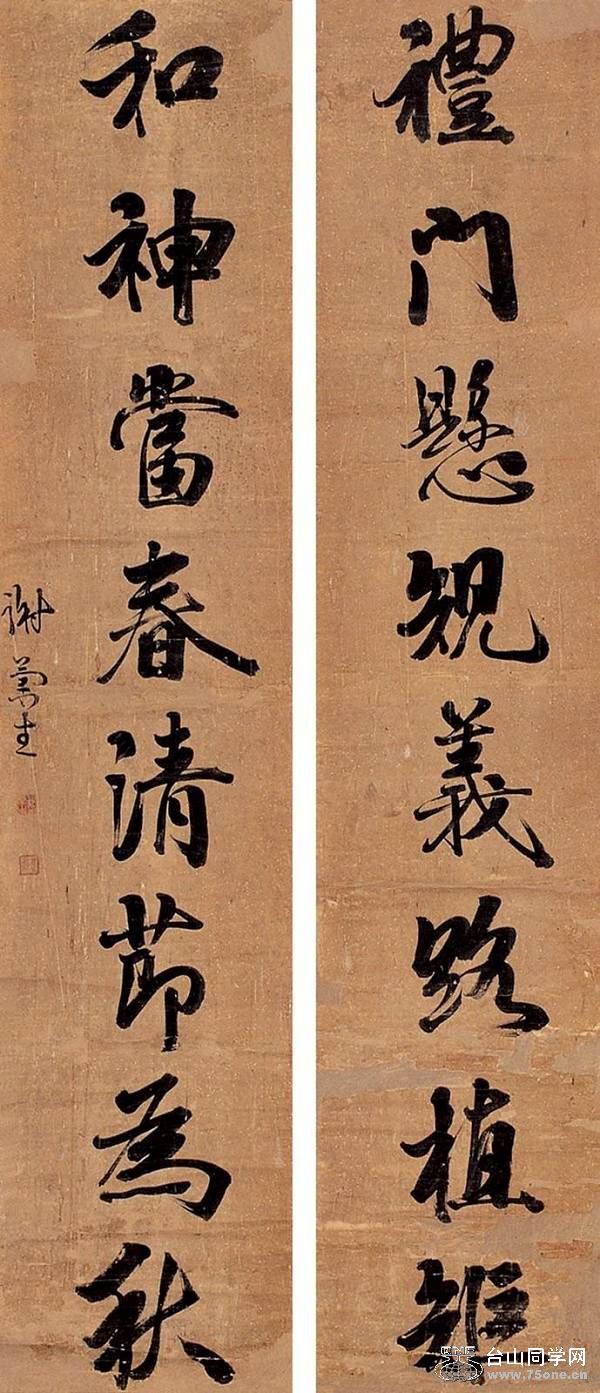 禮門懸規義路植矩
和神當春清節為秋
謝蘭生
台山同学网
www.75one.cn